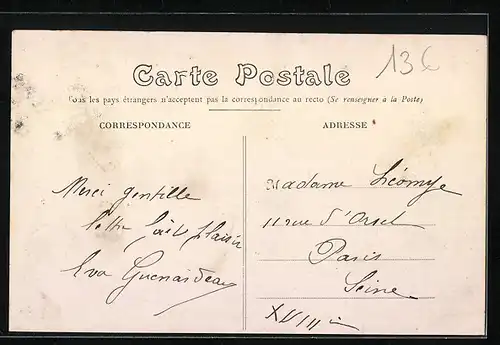 13€
Carte Postale
Tous les pays étrangers n'acceptent pas la correspondance au recto (Se renseigner à la Poste)
CORRESPONDANCE
ADRESSE
Merci gentille
lettre fait plaisir
Eva
Madame
11 rue d'Orsel
Paris
Seine
XVIII e